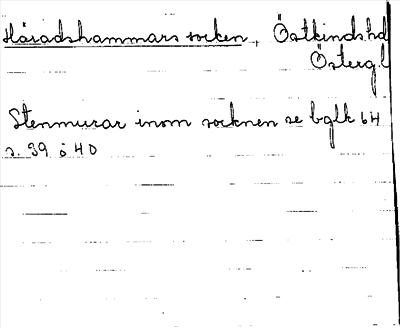 Häradshammars socken, Östkinds hd
Österg.l
Stenmurar inom socknen se bglk 64
s. 39 o 40